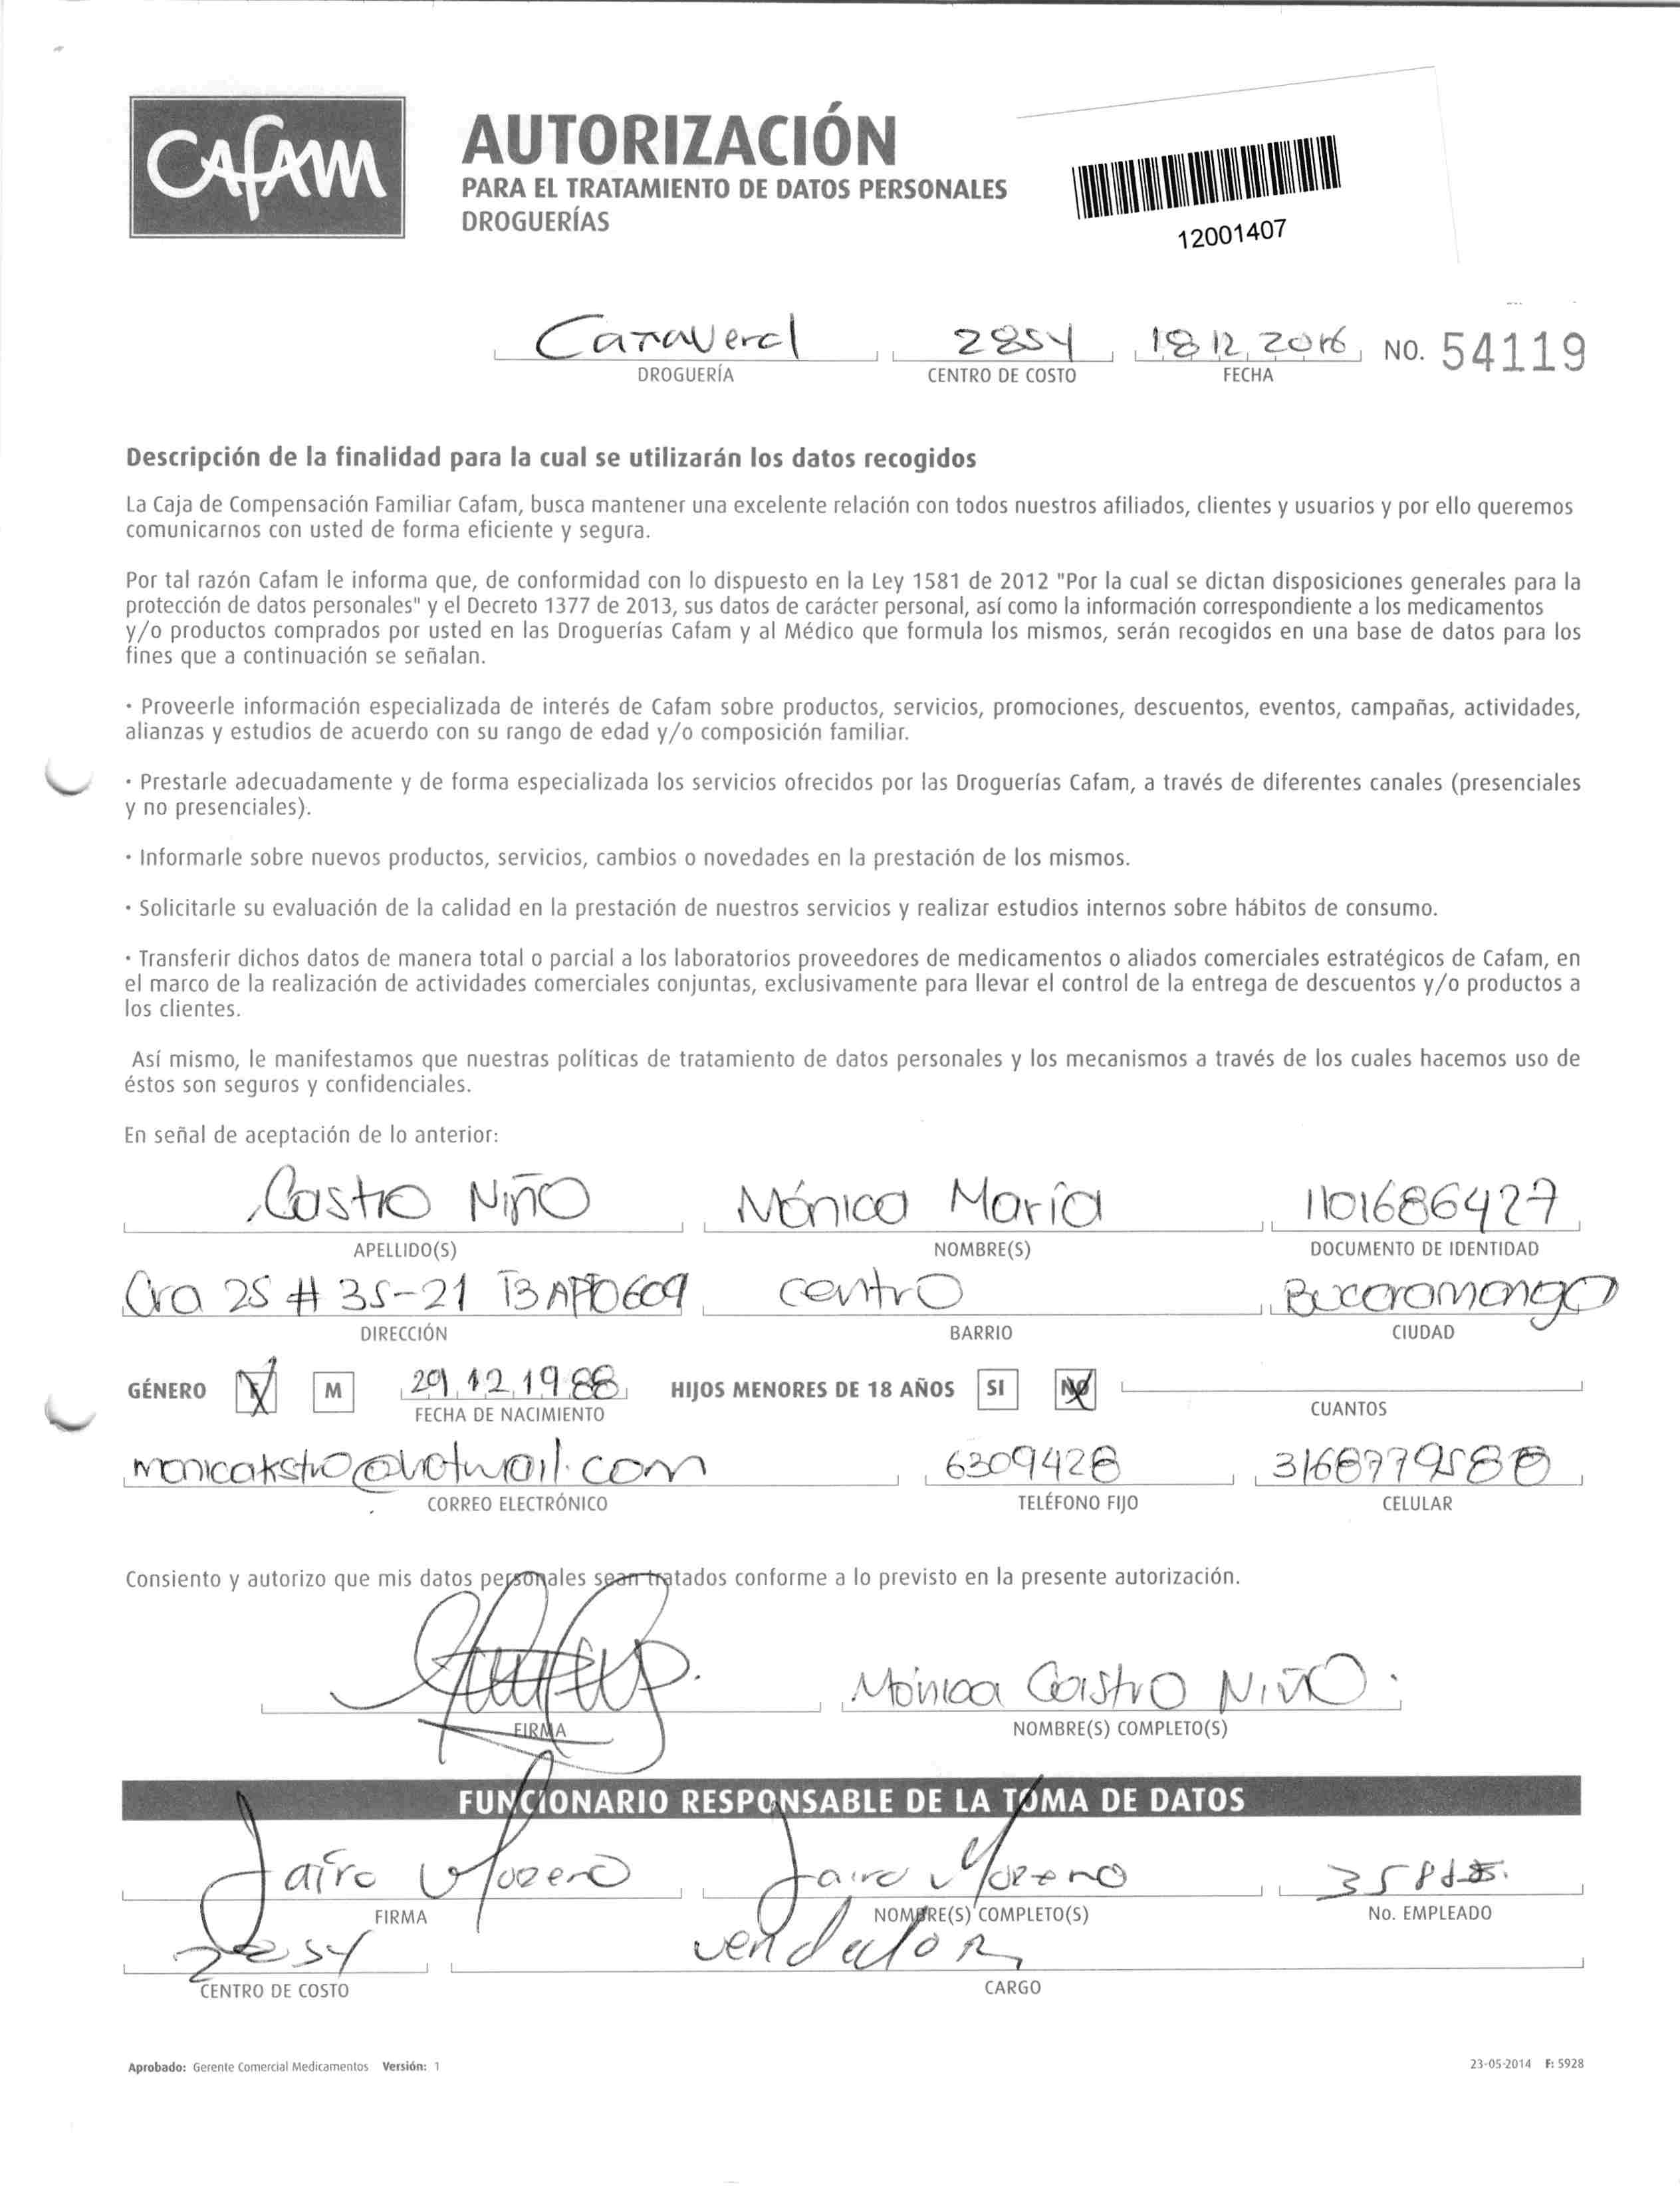 Cafam
AUTORIZACIÓN
PARA EL TRATAMIENTO DE DATOS PERSONALES
DROGUERÍAS
12001407
Cañaveral 2854 18 12 2016 NO. 54119
DROGUERÍA CENTRO DE COSTO FECHA
Descripción de la finalidad para la cual se utilizarán los datos recogidos
La Caja de Compensación Familiar Cafam, busca mantener una excelente relación con todos nuestros afiliados, clientes y usuarios y por ello queremos
comunicarnos con usted de forma eficiente y segura.
Por tal razón Cafam le informa que, de conformidad con lo dispuesto en la Ley 1581 de 2012 "Por la cual se dictan disposiciones generales para la
protección de datos personales" y el Decreto 1377 de 2013, sus datos de carácter personal, así como la información correspondiente a los medicamentos
y/o productos comprados por usted en las Droguerías Cafam y al Médico que formula los mismos, serán recogidos en una base de datos para los
fines que a continuación se señalan.
· Proveerle información especializada de interés de Cafam sobre productos, servicios, promociones, descuentos, eventos, campañas, actividades,
alianzas y estudios de acuerdo con su rango de edad y/o composición familiar.
· Prestarle adecuadamente y de forma especializada los servicios ofrecidos por las Droguerías Cafam, a través de diferentes canales (presenciales
y no presenciales).
· Informarle sobre nuevos productos, servicios, cambios o novedades en la prestación de los mismos.
· Solicitarle su evaluación de la calidad en la prestación de nuestros servicios y realizar estudios internos sobre hábitos de consumo.
· Transferir dichos datos de manera total o parcial a los laboratorios proveedores de medicamentos o aliados comerciales estratégicos de Cafam, en
el marco de la realización de actividades comerciales conjuntas, exclusivamente para llevar el control de la entrega de descuentos y/o productos a
los clientes.
Así mismo, le manifestamos que nuestras políticas de tratamiento de datos personales y los mecanismos a través de los cuales hacemos uso de
éstos son seguros y confidenciales.
En señal de aceptación de lo anterior:
Castro Niño Mónica María 1101686427
APELLIDO(S) NOMBRE(S) DOCUMENTO DE IDENTIDAD
Cra 25 # 35-21 T3 APTO 609 centro Bucaramanga
DIRECCIÓN BARRIO CIUDAD
GÉNERO F M 29 12 1988 HIJOS MENORES DE 18 AÑOS SI NO
FECHA DE NACIMIENTO CUANTOS
monicakstro@hotmail.com 6309428 3168779588
CORREO ELECTRÓNICO TELÉFONO FIJO CELULAR
Consiento y autorizo que mis datos personales sean tratados conforme a lo previsto en la presente autorización.
Mónica Castro Niño.
FIRMA NOMBRE(S) COMPLETO(S)
FUNCIONARIO RESPONSABLE DE LA TOMA DE DATOS
Jairo Moreno Jairo Moreno
FIRMA NOMBRE(S) COMPLETO(S) No. EMPLEADO
2854 vendedor
CENTRO DE COSTO CARGO
Aprobado: Gerente Comercial Medicamentos Versión: 1 23-05-2014 F: 5928